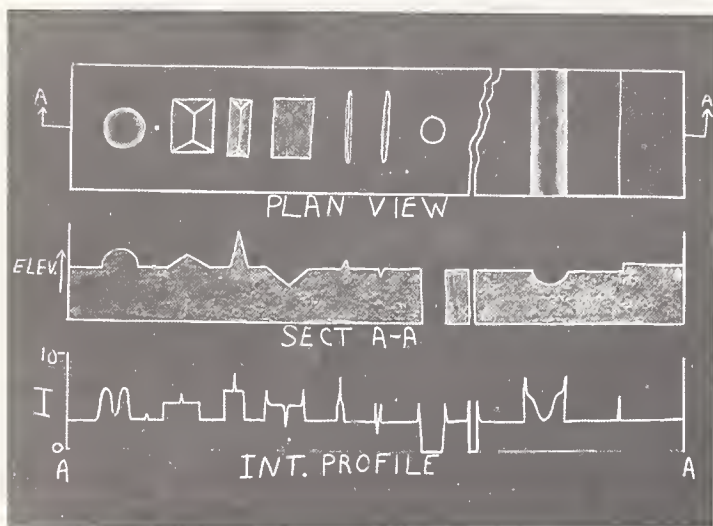 A A
PLAN VIEW
ELEV.
SECT A-A
10
I
0
A INT. PROFILE A